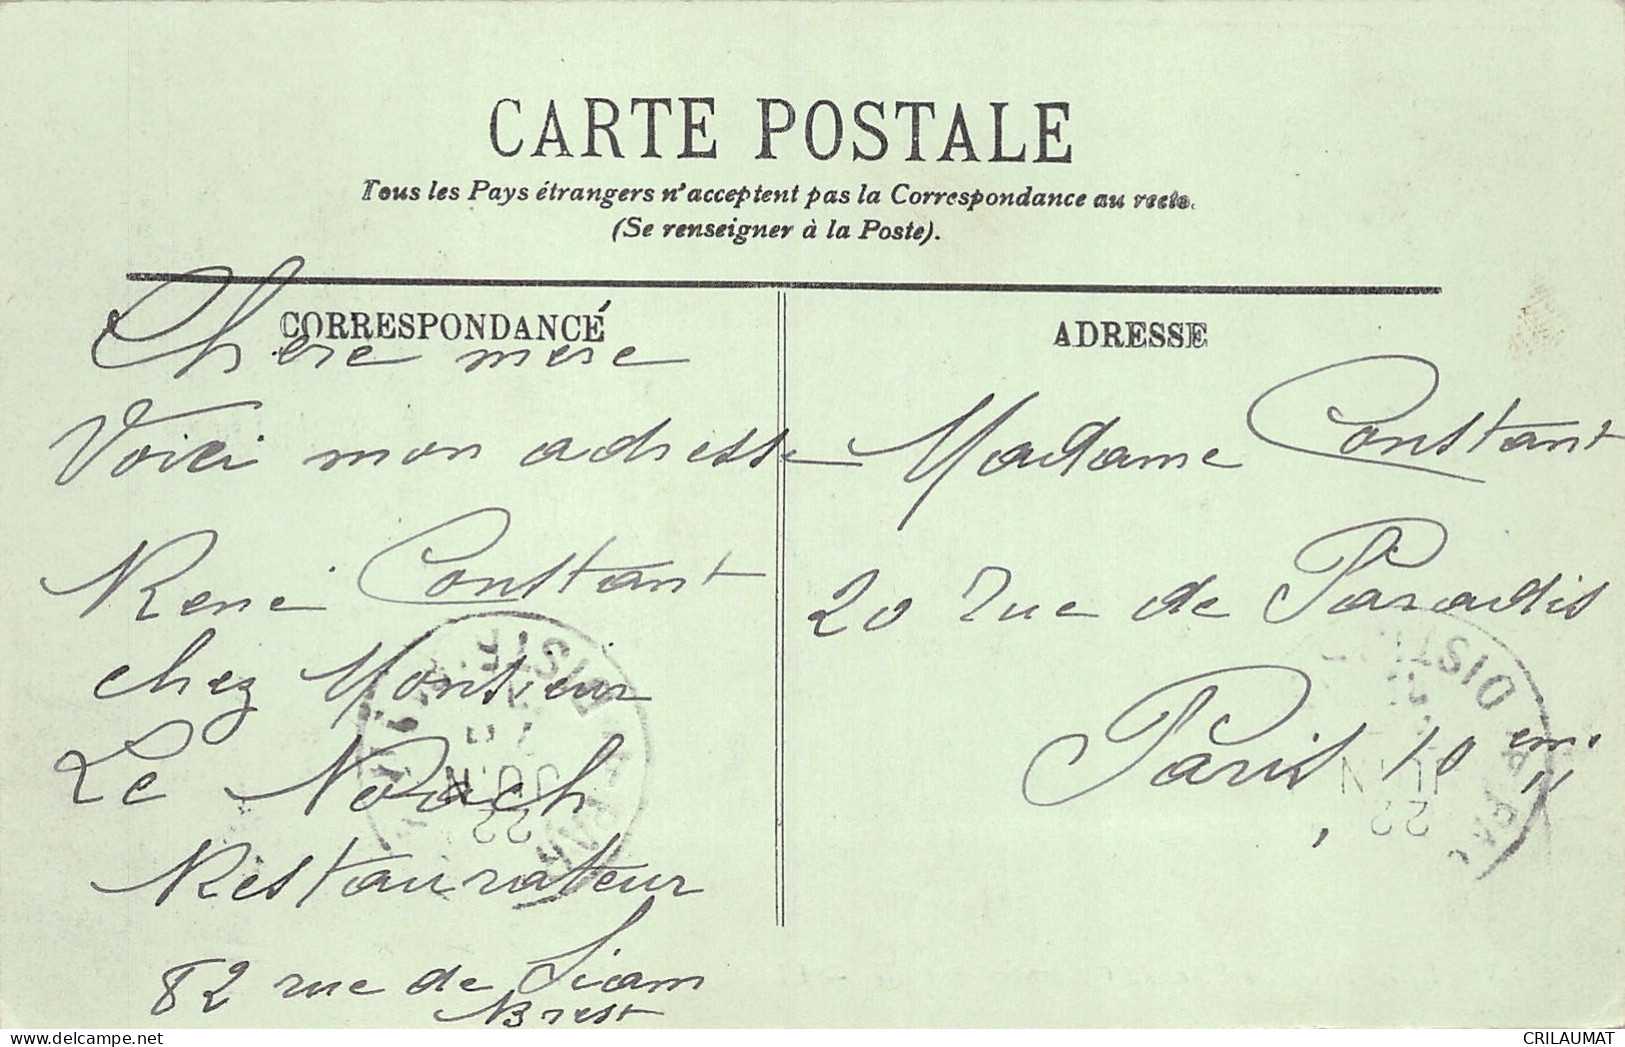 CARTE POSTALE
Tous les Pays étrangers n'acceptent pas la Correspondance au recto.
(Se renseigner à la Poste).
CORRESPONDANCE
Chere mere
Voici mon adresse
René Constant
chez Monsieur
Le
Restaurateur
82 rue de Siam
Brest
ADRESSE
Madame Constant
20 Rue de Paradis
Paris 10 em
22
JUIN
DISTR
PARIS
22
JUIN
DISTR
CRILAUMAT